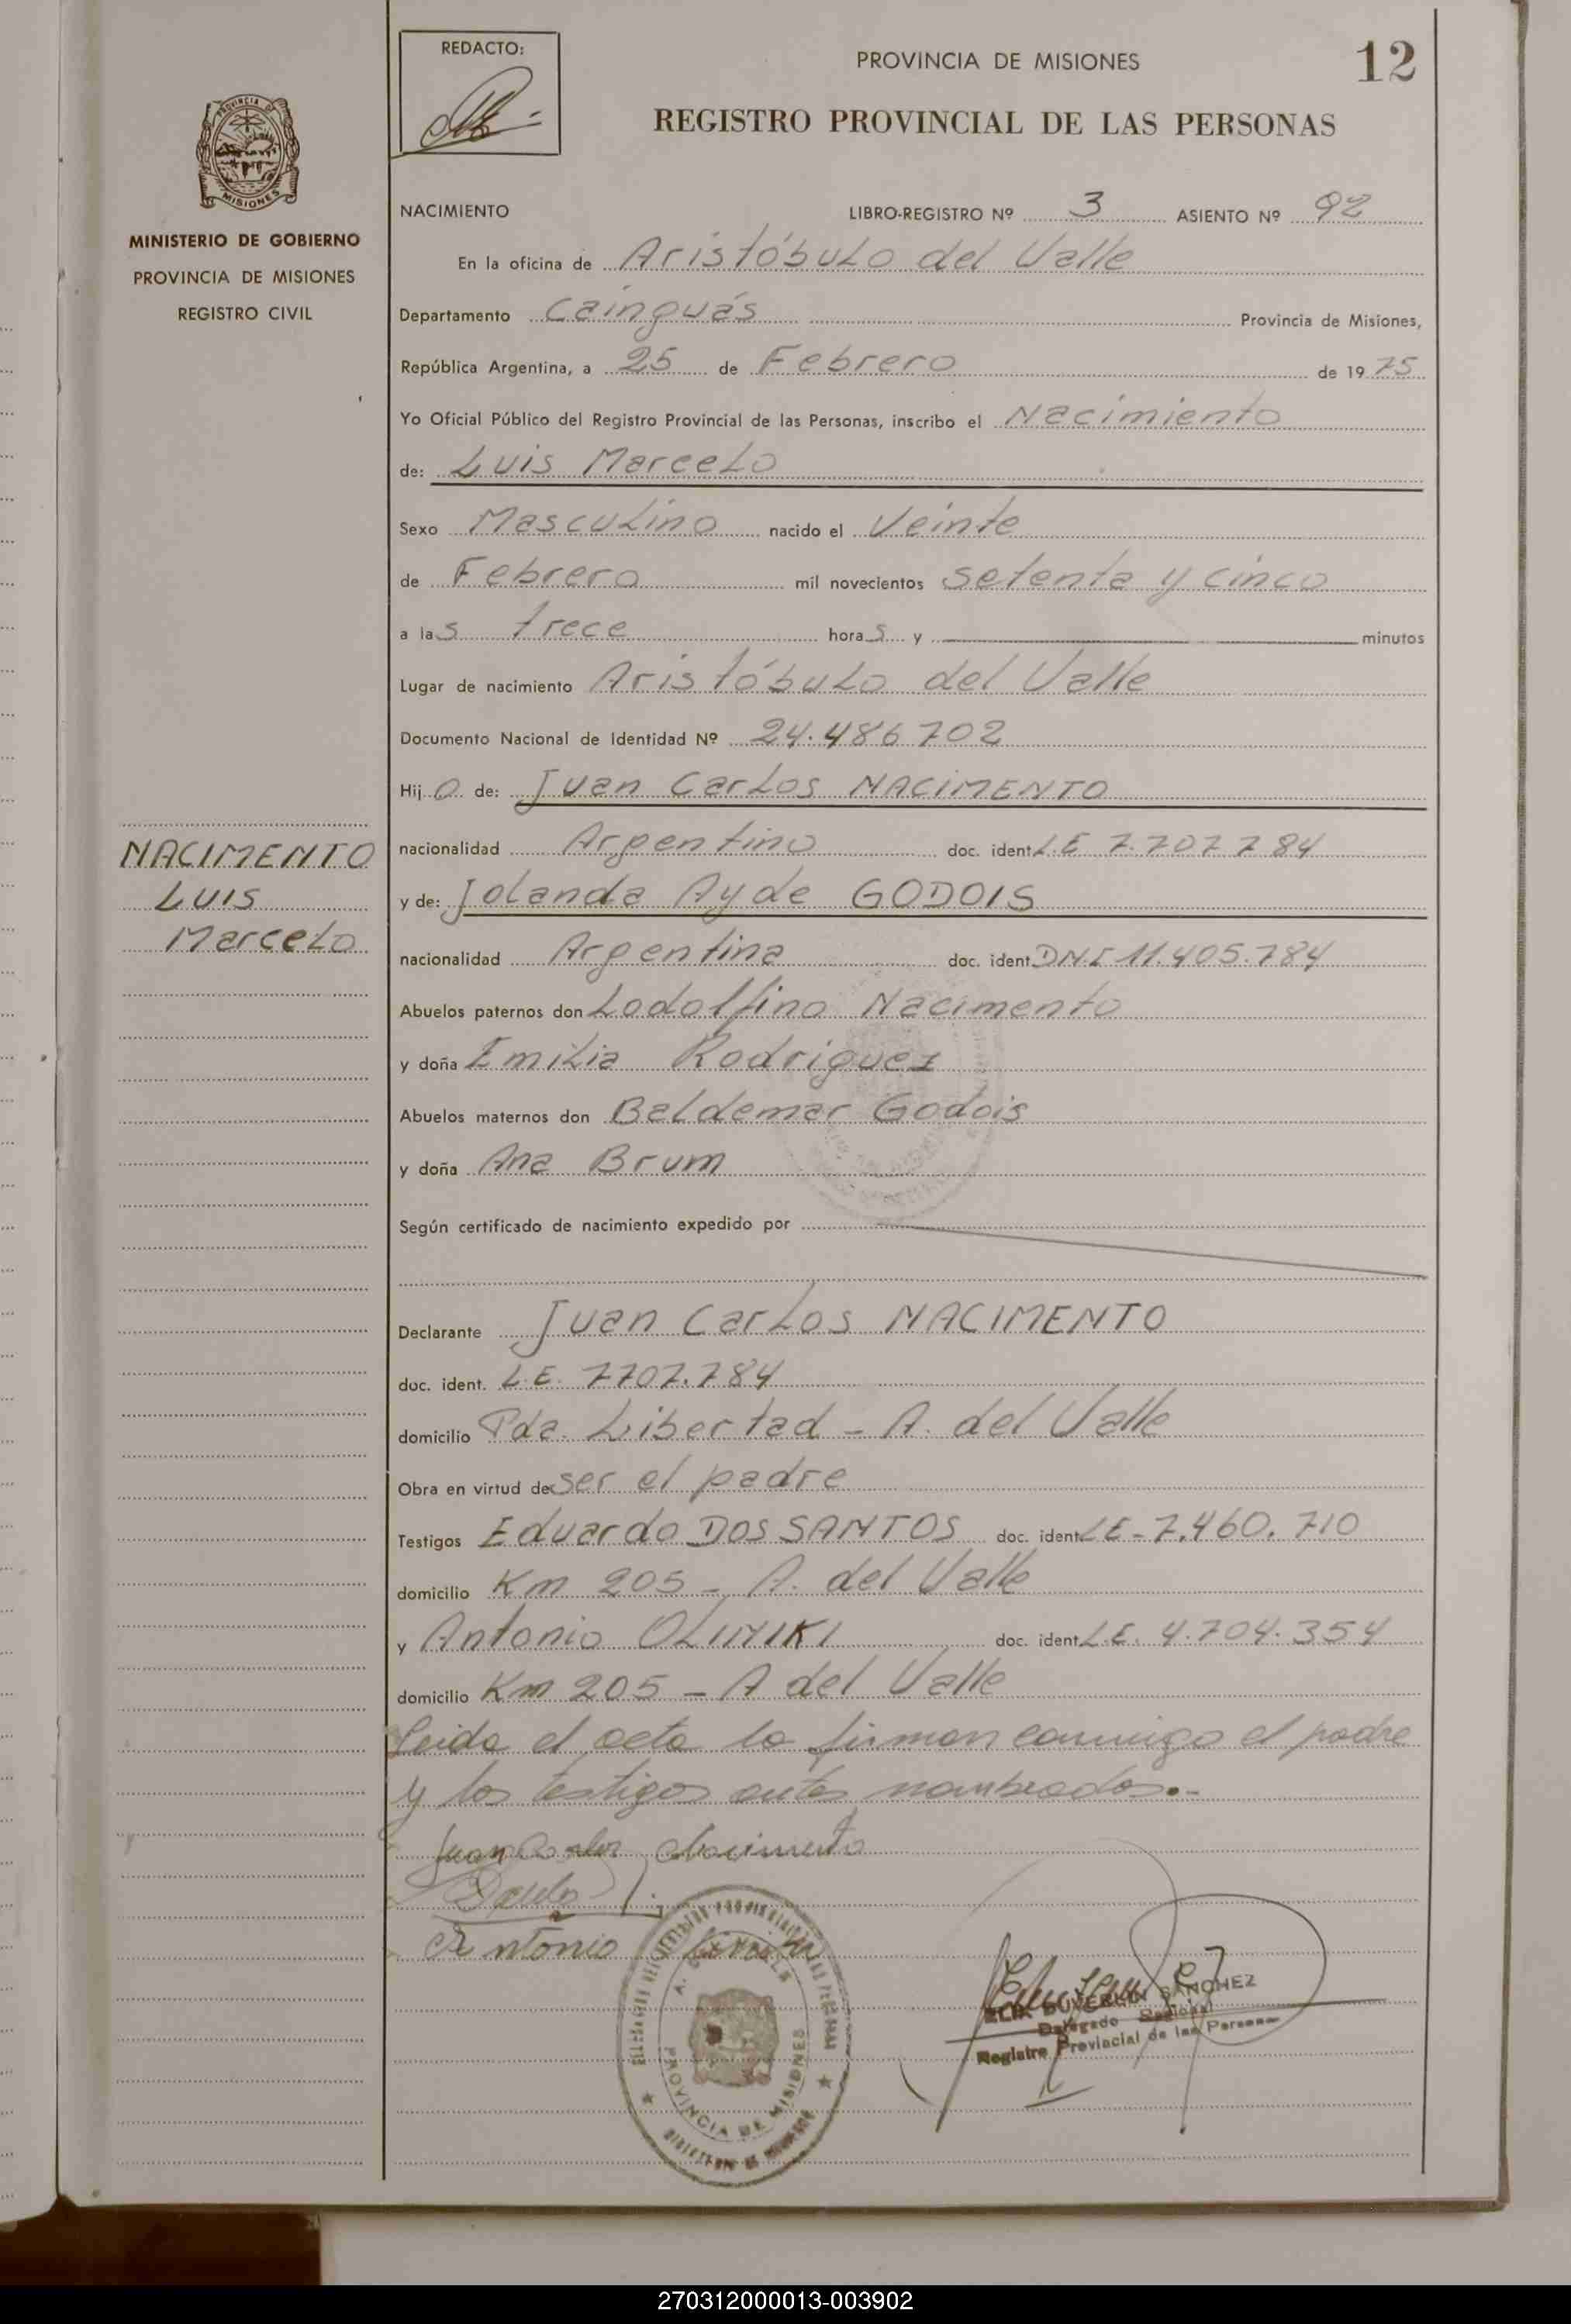 REDACTO:
PROVINCIA DE MISIONES
12
REGISTRO PROVINCIAL DE LAS PERSONAS
PROVINCIA DE
MISIONES
MINISTERIO DE GOBIERNO
PROVINCIA DE MISIONES
REGISTRO CIVIL
NACIMIENTO LIBRO-REGISTRO Nº 3 ASIENTO Nº 92
En la oficina de Aristóbulo del Valle
Departamento Cainguás Provincia de Misiones,
República Argentina, a 25 de Febrero de 1975
Yo Oficial Público del Registro Provincial de las Personas, inscribo el Nacimiento
de: Luis Marcelo
Sexo Masculino nacido el Veinte
de Febrero mil novecientos setenta y cinco
a las trece horas y minutos
Lugar de nacimiento Aristóbulo del Valle
Documento Nacional de Identidad Nº 24.486702
Hijo de: Juan Carlos NACIMENTO
nacionalidad Argentino doc. ident. L.E 7.707 784
y de: Jolanda Ayde GODOIS
nacionalidad Argentina doc. ident DN.I 11.405.784
Abuelos paternos don Lodolfino Nacimento
y doña Emilia Rodriguez
Abuelos maternos don Baldemar Godois
y doña Ana Brum
Según certificado de nacimiento expedido por
NACIMENTO
LUIS
Marcelo
Declarante Juan Carlos NACIMENTO
doc. ident. L.E. 7707.784
domicilio Pda. Libertad - A. del Valle
Obra en virtud de ser el padre
Testigos Eduardo DOS SANTOS doc. ident LE-7.460.710
domicilio Km 205 - A. del Valle
y Antonio doc. ident. L.E. 4.704.354
domicilio Km 205 - A del Valle
Leida el acta la firman conmigo el padre
y los testigos antes nombrados.-
Juan Carlos Nacimento
Antonio
A. DEL VALLE
PROVINCIA DE MISIONES
SANCHEZ
Delegado Regional
Registro Provincial de las Personas
270312000013-003902